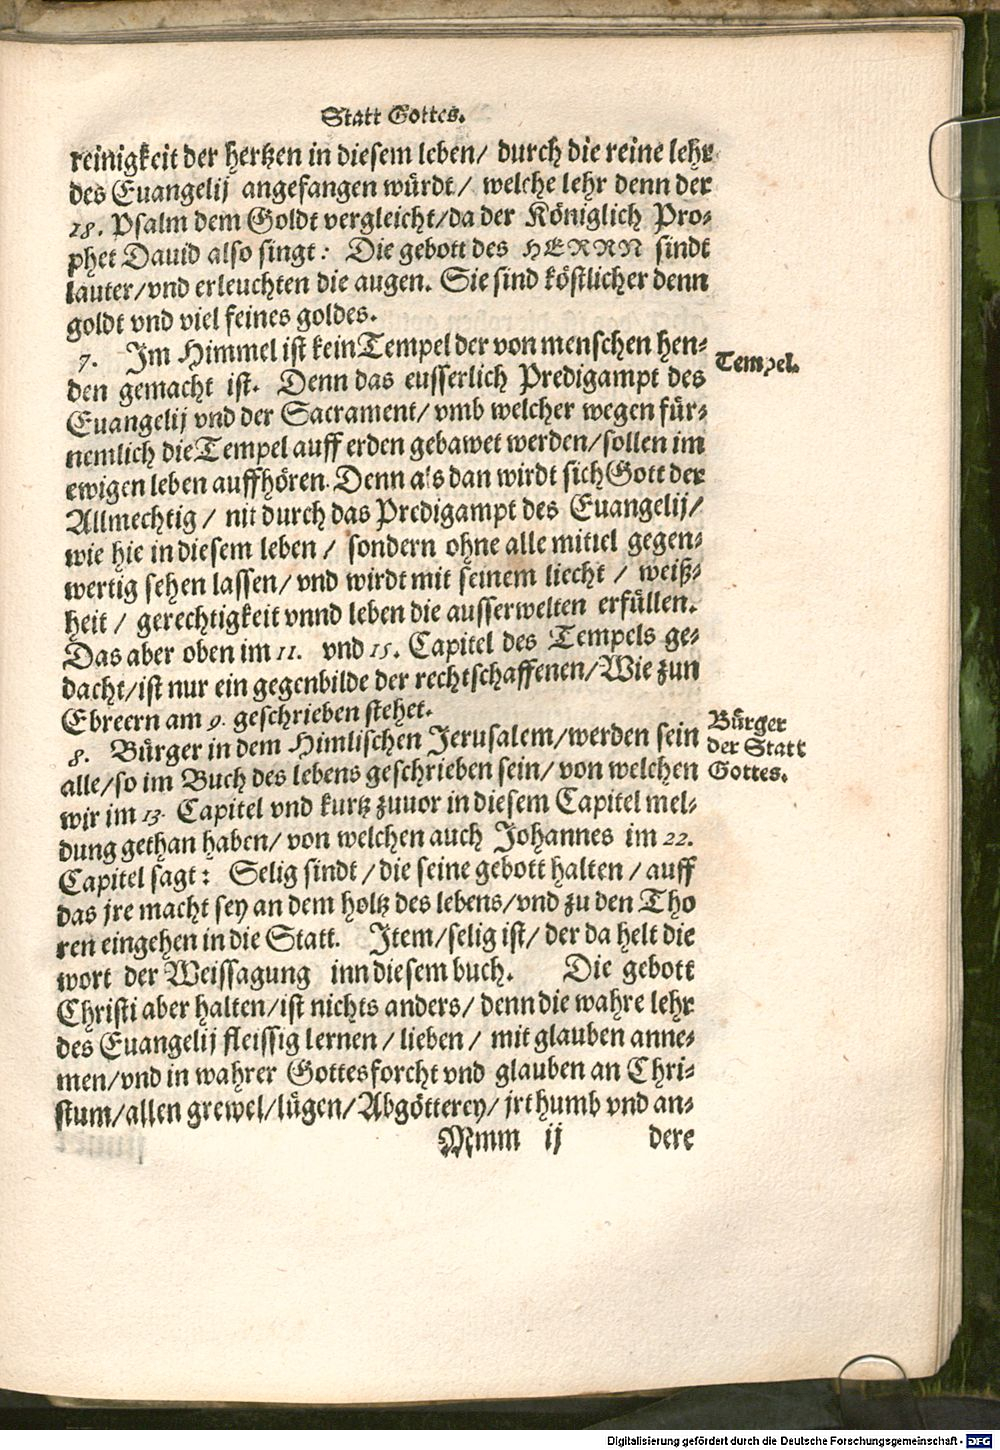 Statt Gottes.
reinigkeit der hertzen in diesem leben/ durch die reine lehr
des Euangelij angefangen würdt/ welche lehr denn der
18. Psalm dem Goldt vergleicht/da der Königlich Pro-
phet Dauid also singt: Die gebott des HERRN sindt
lauter/vnd erleuchten die augen. Sie sind köstlicher denn
goldt vnd viel feines goldes.
7. Im Himmel ist kein Tempel der von menschen hen-
den gemacht ist. Denn das eusserlich Predigampt des
Euangelij vnd der Sacrament/ vmb welcher wegen für-
nemlich die Tempel auff erden gebawet werden/sollen im
ewigen leben auffhören. Denn als dan wirdt sich Gott der
Allmechtig/ nit durch das Predigampt des Euangelij/
wie hie in diesem leben/ sondern ohne alle mittel gegen-
wertig sehen lassen/ vnd wirdt mit seinem liecht/ weiß-
heit/ gerechtigkeit vnnd leben die ausserwelten erfüllen.
Das aber oben im 11. vnd 15. Capitel des Tempels ge-
dacht/ist nur ein gegenbilde der rechtschaffenen/Wie zun
Ebreern am 9. geschrieben stehet.
8. Bürger in dem Himlischen Jerusalem/werden sein
alle/so im Buch des lebens geschrieben sein/ von welchen
wir im 13. Capitel vnd kurtz zuuor in diesem Capitel mel-
dung gethan haben/ von welchen auch Johannes im 22.
Capitel sagt: Selig sindt/die seine gebott halten/auff
das jre macht sey an dem holtz des lebens/vnd zu den Tho
ren eingehen in die Statt. Item/selig ist/ der da helt die
wort der Weissagung inn diesem buch. Die gebott
Christi aber halten/ist nichts anders/ denn die wahre lehr
des Euangelij fleissig lernen/lieben/ mit glauben anne-
men/vnd in wahrer Gottesforcht vnd glauben an Chri-
stum/allen grewel/lügen/Abgötterey/jrthumb vnd an-
Mmm ij dere
Tempel.
Bürger
der Statt
Gottes.
Digitalisierung gefördert durch die Deutsche Forschungsgemeinschaft - DFG